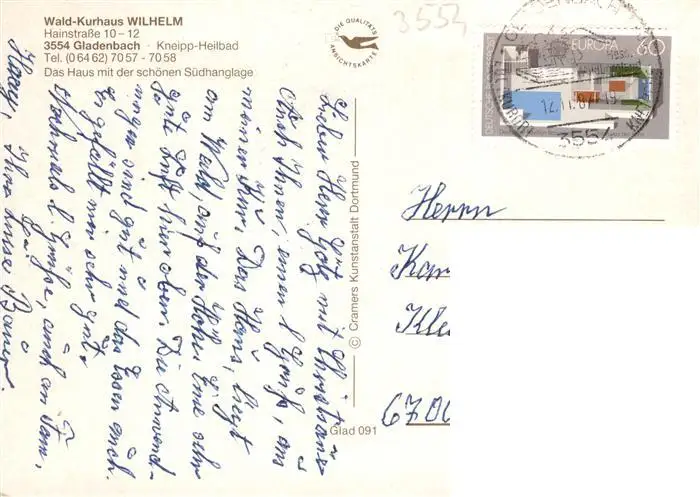 Wald-Kurhaus WILHELM
Hainstraße 10 – 12
3554 Gladenbach · Kneipp-Heilbad
Tel. (0 64 62) 70 57 - 70 58
Das Haus mit der schönen Südhanglage
DIE QUALITÄTS
ANSICHTSKARTE
3554
DEUTSCHE BUNDESPOST
EUROPA 60
12.11.87-19
3554
Lieber Herr Götz mit
auch Ihnen, einen l. Gruß, aus
meiner Kur. Das Haus, liegt
am Wald, auf der Höhe. Eine sehr
gute Luft hier oben. Die Anwend-
ungen sind gut und das Essen auch.
Es gefällt mir sehr gut.
Nochmals l. Grüße, auch an Fam.
Ihre
© Cramers Kunstanstalt Dortmund
Herrn
Kar
Kle
6700
Glad 091